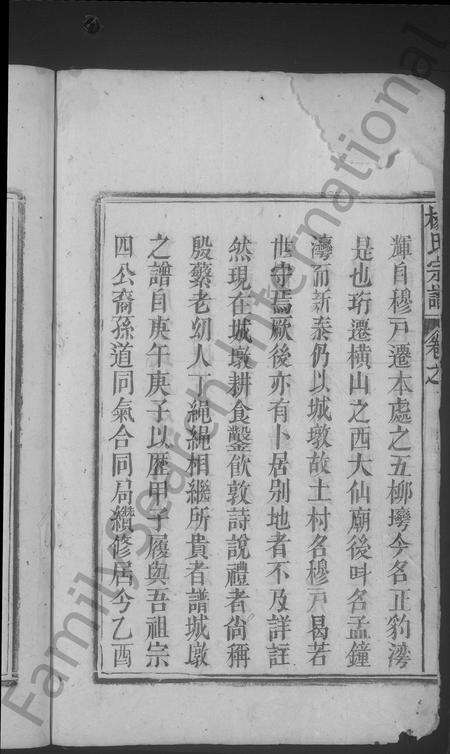 楊氏宗譜 卷之
輝自穆戸遷本處之五柳塆今名正豹灣
是也珩遷橫山之西大仙廟後呌名孟鐘
灣而新泰仍以城墩故土村名穆戸曷若
世守焉厥後亦有卜居别地者不及詳註
然現在城墩耕食鑿飲敦詩說禮者尙稱
殷蘩老幼人丁繩繩相繼所貴者譜城墩
之譜自庚午庚子以歷甲子履與吾祖宗
四公裔孫道同氣合同局纘修居今乙酉
FamilySearch International